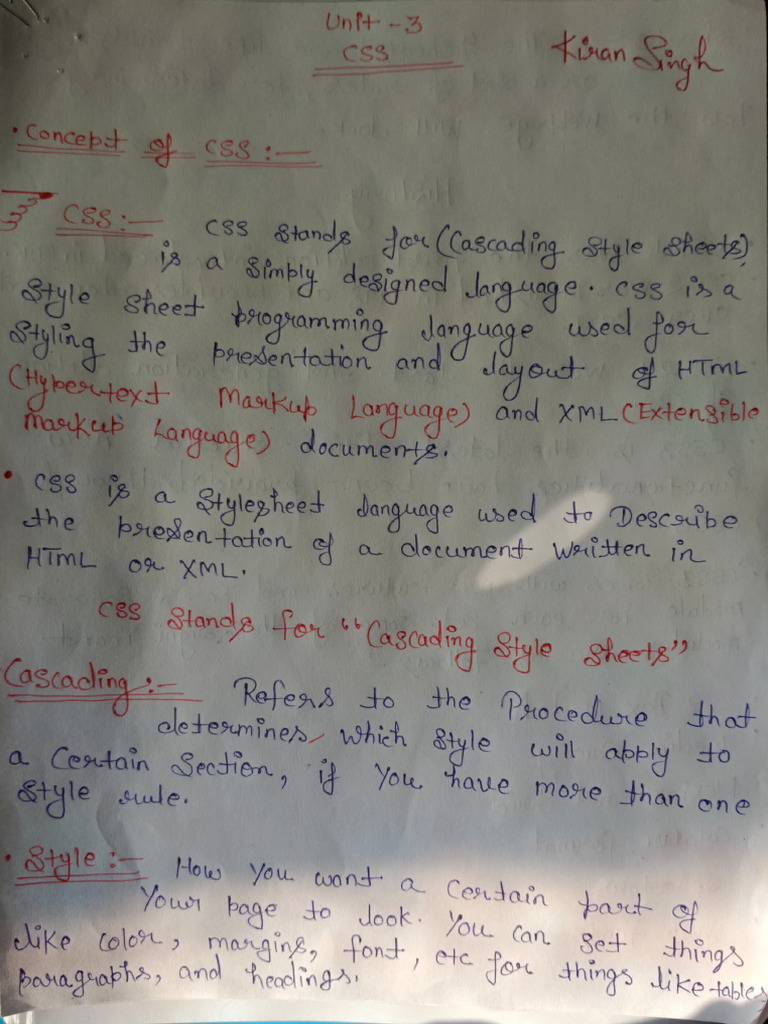 Unit - 3
CSS
Kiran Singh
• Concept of CSS :—
CSS :— CSS stands for (Cascading Style Sheets)
is a simply designed language. CSS is a
Style sheet programming language used for
Styling the presentation and layout of HTML
(Hypertext Markup Language) and XML (Extensible
Markup Language) documents.
• CSS is a Stylesheet language used to Describe
the presentation of a document written in
HTML or XML.
CSS Stands for "Cascading Style Sheets"
Cascading :— Refers to the Procedure that
determines which style will apply to
a Certain Section, if You have more than one
Style rule.
• Style :— How You want a Certain part of
Your page to look. You can set things
like color, margins, font, etc for things like tables
paragraphs, and headings.